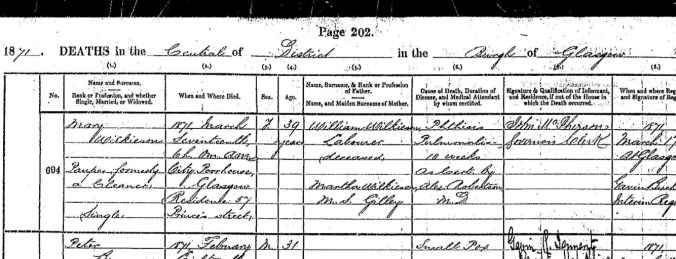 Page 202.
1871. DEATHS in the Central of District in the Burgh of Glasgow
(1.) (2.) (3.) (4.) (5.) (6.) (7.) (8.)
No.
Name and Surname.
Rank or Profession, and whether Single, Married, or Widowed.
When and Where Died.
Sex.
Age.
Name, Surname, & Rank or Profession of Father.
Name, and Maiden Surname of Mother.
Cause of Death, Duration of Disease, and Medical Attendant by whom certified.
Signature & Qualification of Informant, and Residence, if out of the House in which the Death occurred.
When and where Reg
and Signature of Reg
604
Mary
Wilkieson
Pauper formerly
a Cleaner
Single
1871, March
Seventeenth,
6h. 0m. A.M.
City Poorhouse,
Glasgow
Residence 57
Princes street,
F
39
years
William Wilkieson
Labourer
deceased,
Martha Wilkieson
M.S. Gilley
Phthisis
Pulmonalis
10 weeks
As Cert. by
Alex. Robertson
M.D.
John McPherson
Governor's Clerk
1871
March 17
At Glasgow
Gavin
Interim Reg
Peter
1871, February
M.
31
Small Pox
1871,